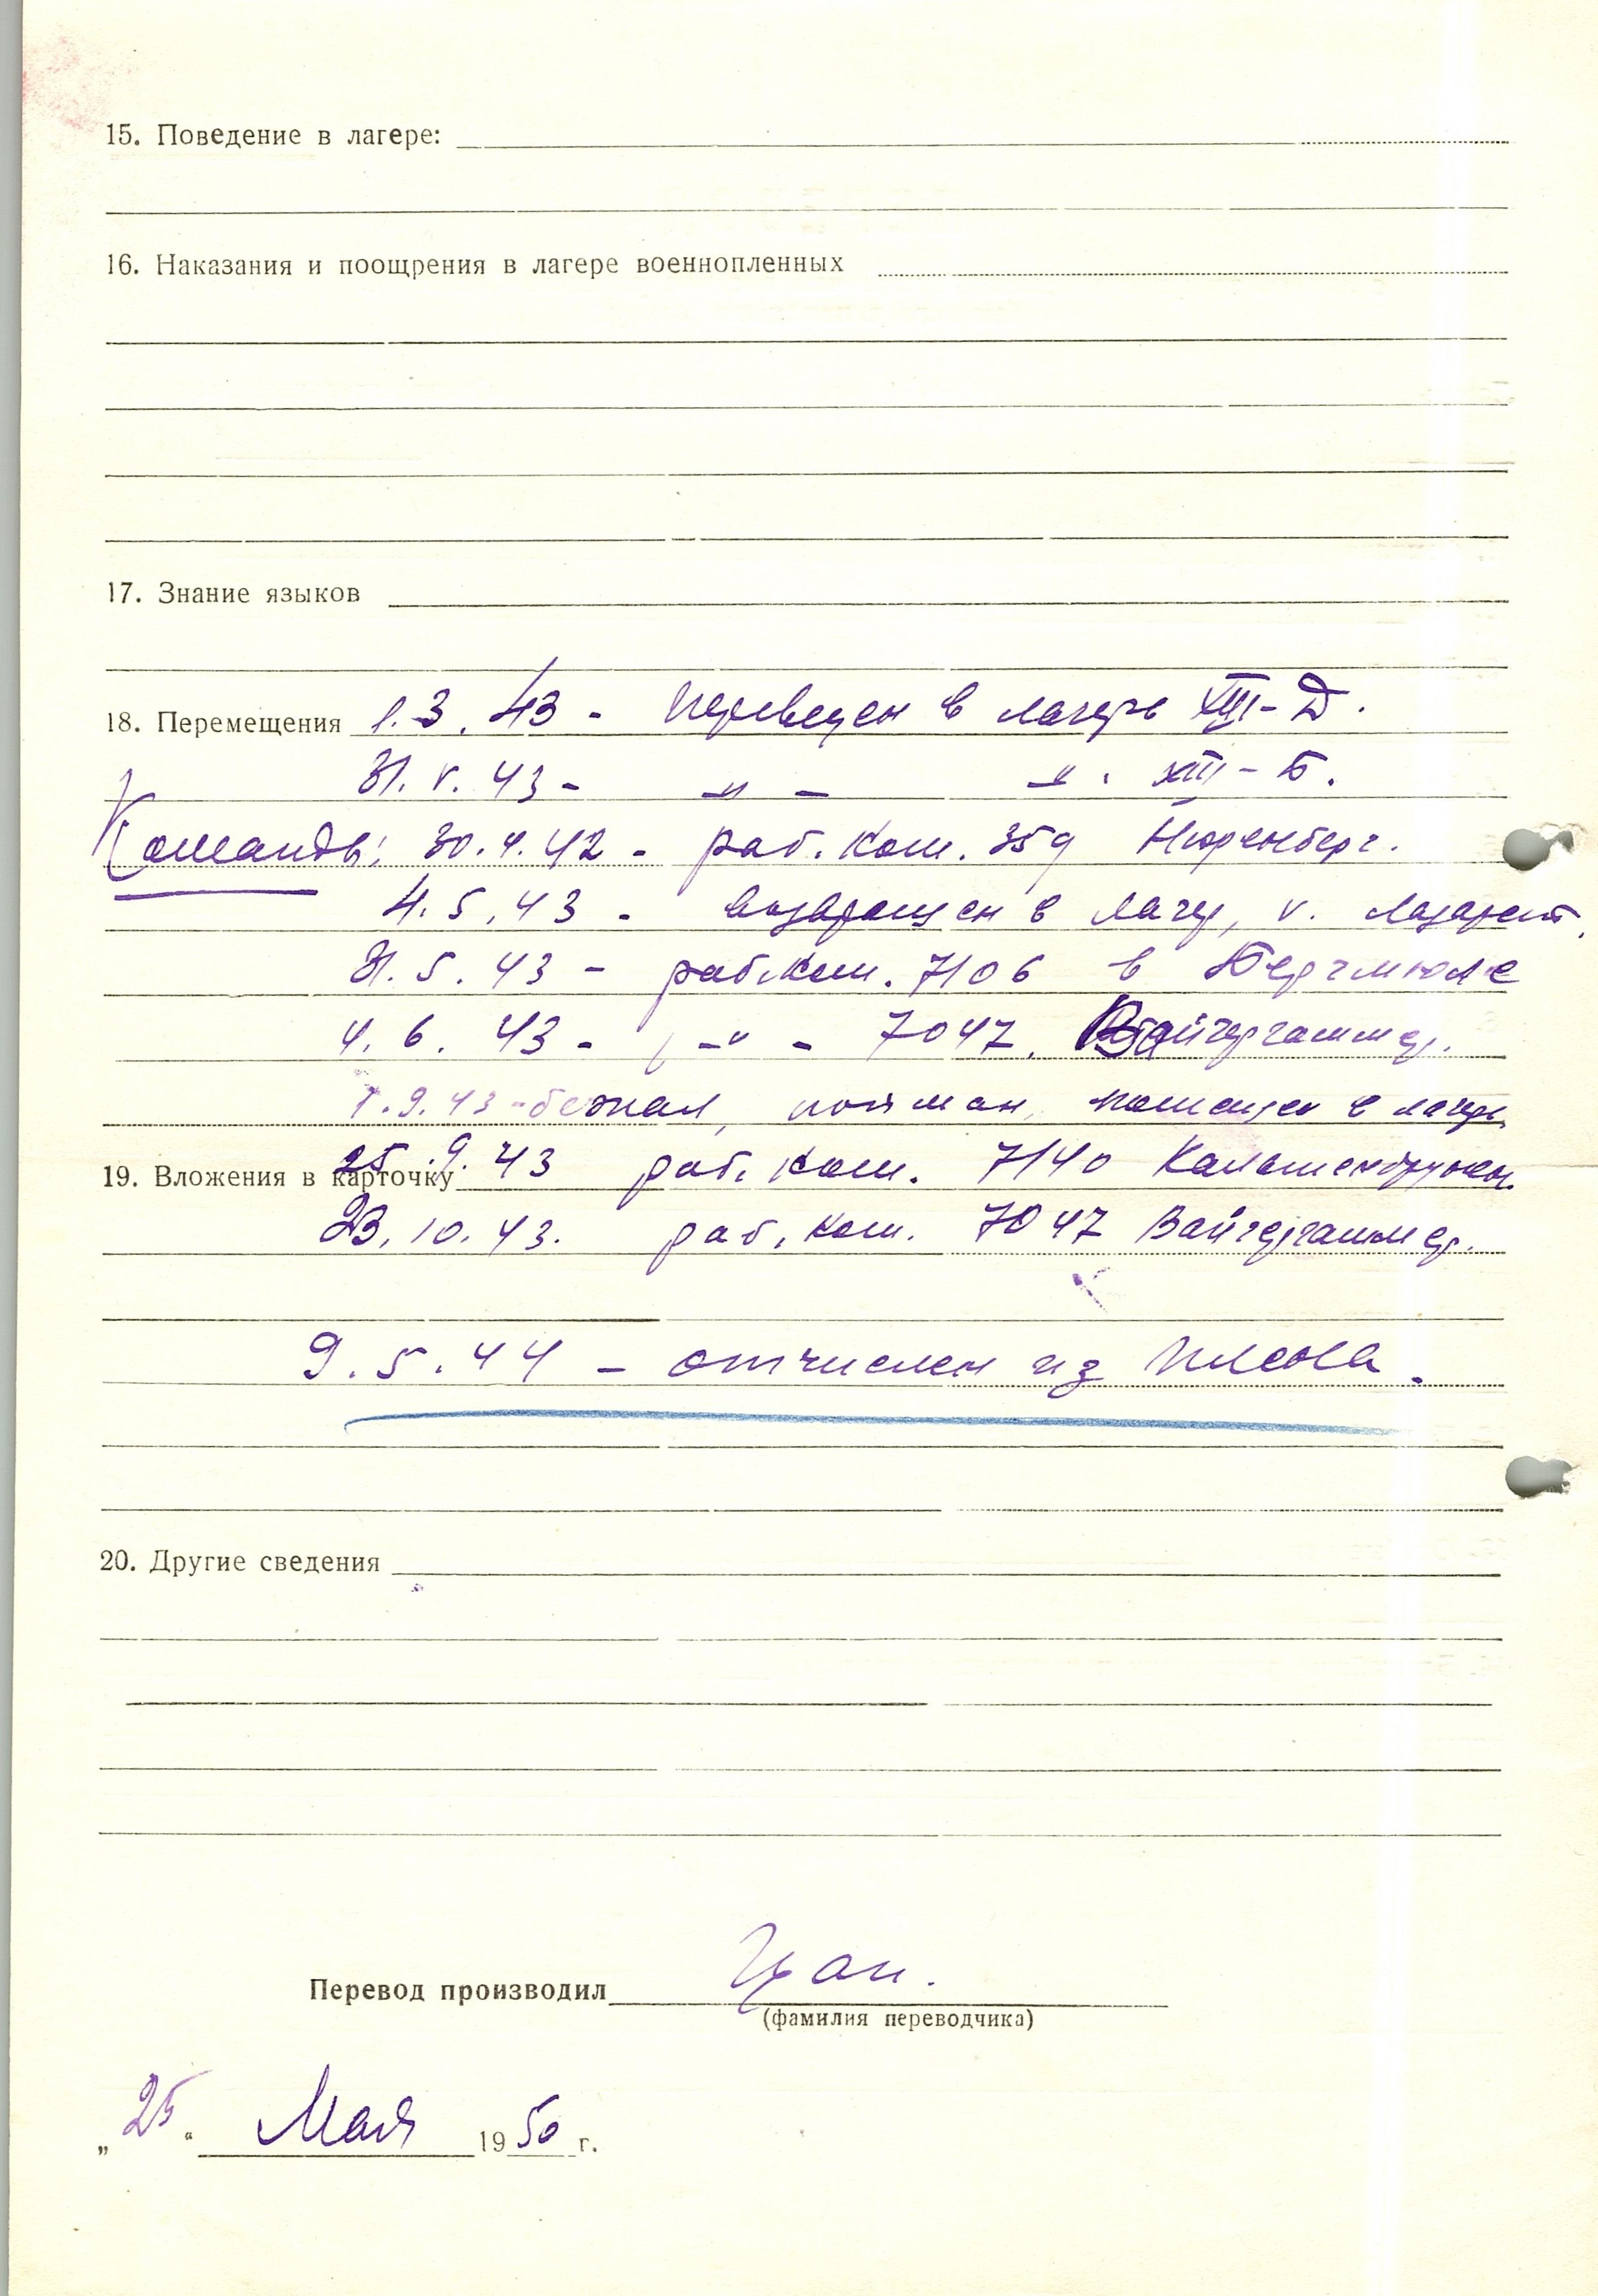 15. Поведение в лагере:
16. Наказания и поощрения в лагере военнопленных
17. Знание языков
18. Перемещения 1.3.43 - переведен в лагерь XIII-Д.
31.V.43 - „ - „. XIII-Б.
Команды: 30.4.42 - раб. ком. 359 Нюренберг.
4.5.43 - возвращен в лагер, v. лазарет.
31.5.43 - раб. ком. 7106 в Бергмюле
4.6.43 - „ - 7047. Вайгергаммер.
.9.43 - бежал, пойман, помещен в лагерь
25.9.43 раб. ком. 7140
19. Вложения в карточку
23.10.43. раб. ком. 7047 Вайгергаммер.
9.5.44 - отчислен из плена.
20. Другие сведения
Перевод производил
(фамилия переводчика)
„25“ Мая 1950 г.